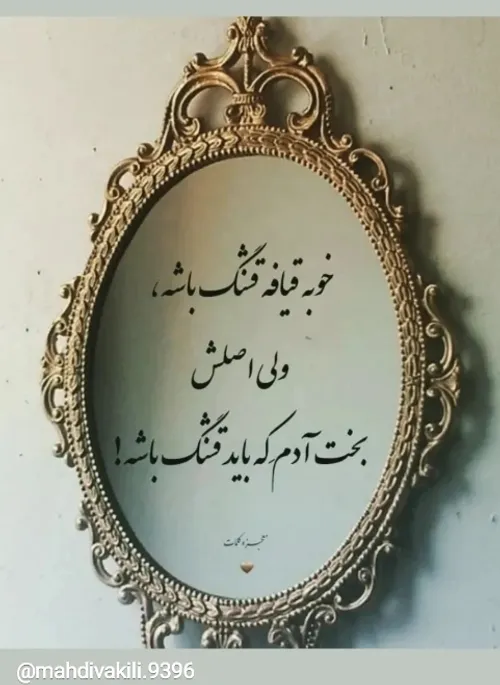 خوبه قیافه قشنگ باشه،
ولی اصلش
بخت آدم که باید قشنگ باشه!
معجزه کلمات
@mahdivakili.9396